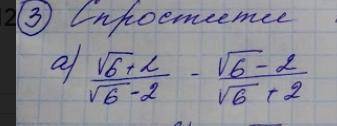 ③ Спростити
а) (√6+2)/(√6-2) - (√6-2)/(√6+2)